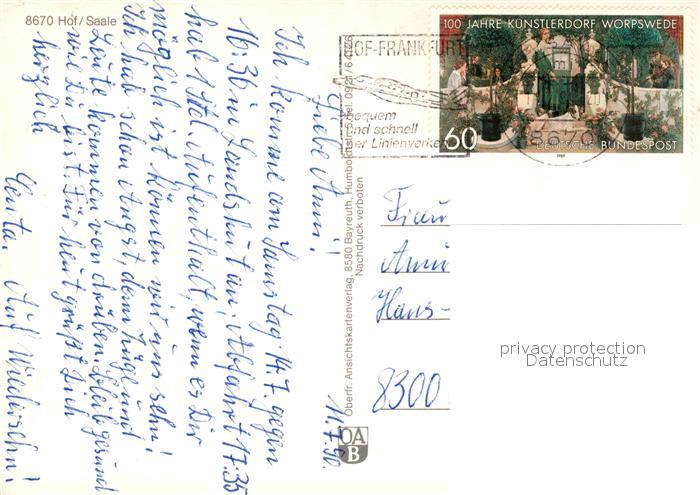 8670 Hof/Saale
11.7.90.
Liebe Anni!
Ich komme am Samstag 14.7 gegen
16:36 in Landshut an; Abfahrt 17:35
hab 1 Std. Aufenthalt, wenn es Dir
möglich ist können wir uns sehn!
Ich hab schon Angst, denn Züge und
Leute kommen von drüben. Bleib gesund
wie Du bist. Für heut grüßt Dich
herzlich
Centa. Auf Wiedersehn!
Oberfr. Ansichtskartenverlag, 8580 Bayreuth, Humboldtstr.
Nachdruck verboten
OA
B
HOF-FRANKFURT
bequem
und schnell
per Linienverkehr
100 JAHRE KÜNSTLERDORF WORPSWEDE
60
DEUTSCHE BUNDESPOST
1989
8670
Frau
Anni
Hans-
8300
privacy protection
Datenschutz